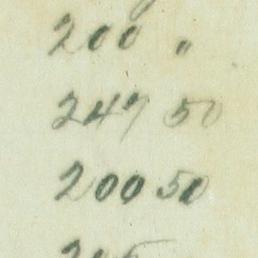 200 "
247 50
200 50